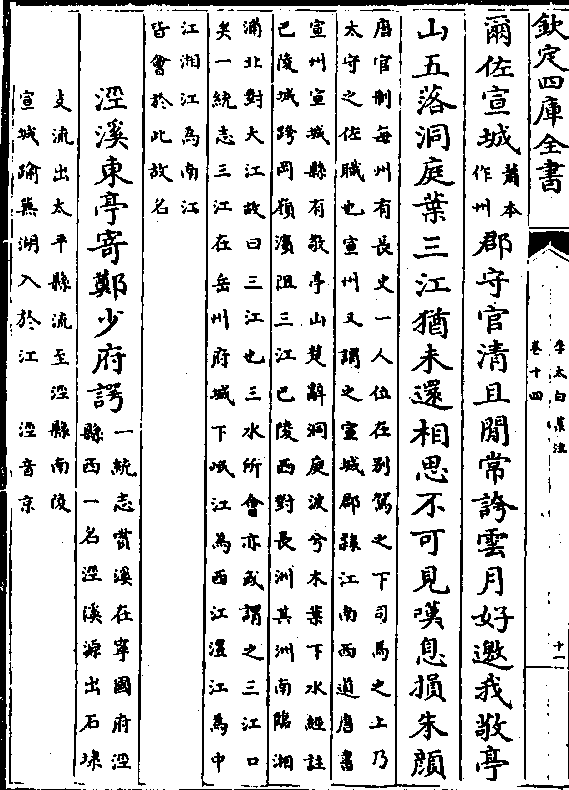 欽定四庫全書
李太白集注
卷十四
十一
爾佐宣城蕭本作州郡守官清且閒常誇雲月好邀我敬亭
山五落洞庭葉三江猶未還相思不可見嘆息損朱顔
唐官制每州有長史一人位在别駕之下司馬之上乃
太守之佐職也宣州又謂之宣城郡隸江南西道唐書
宣州宣城縣有敬亭山楚辭洞庭波兮木葉下水經註
巴陵城跨岡嶺濱阻三江巴陵西對長洲其洲南臨湘
浦北對大江故曰三江也三水所會亦或謂之三江口
矣一統志三江在岳州府城下岷江為西江澧江為中
江湘江為南江
皆會於此故名
涇溪東亭寄鄭少府諤
一統志賞溪在寧國府涇
縣西一名涇溪源出石埭
支流出太平縣流至涇縣南陵
宣城踰蕪湖入於江　涇音京